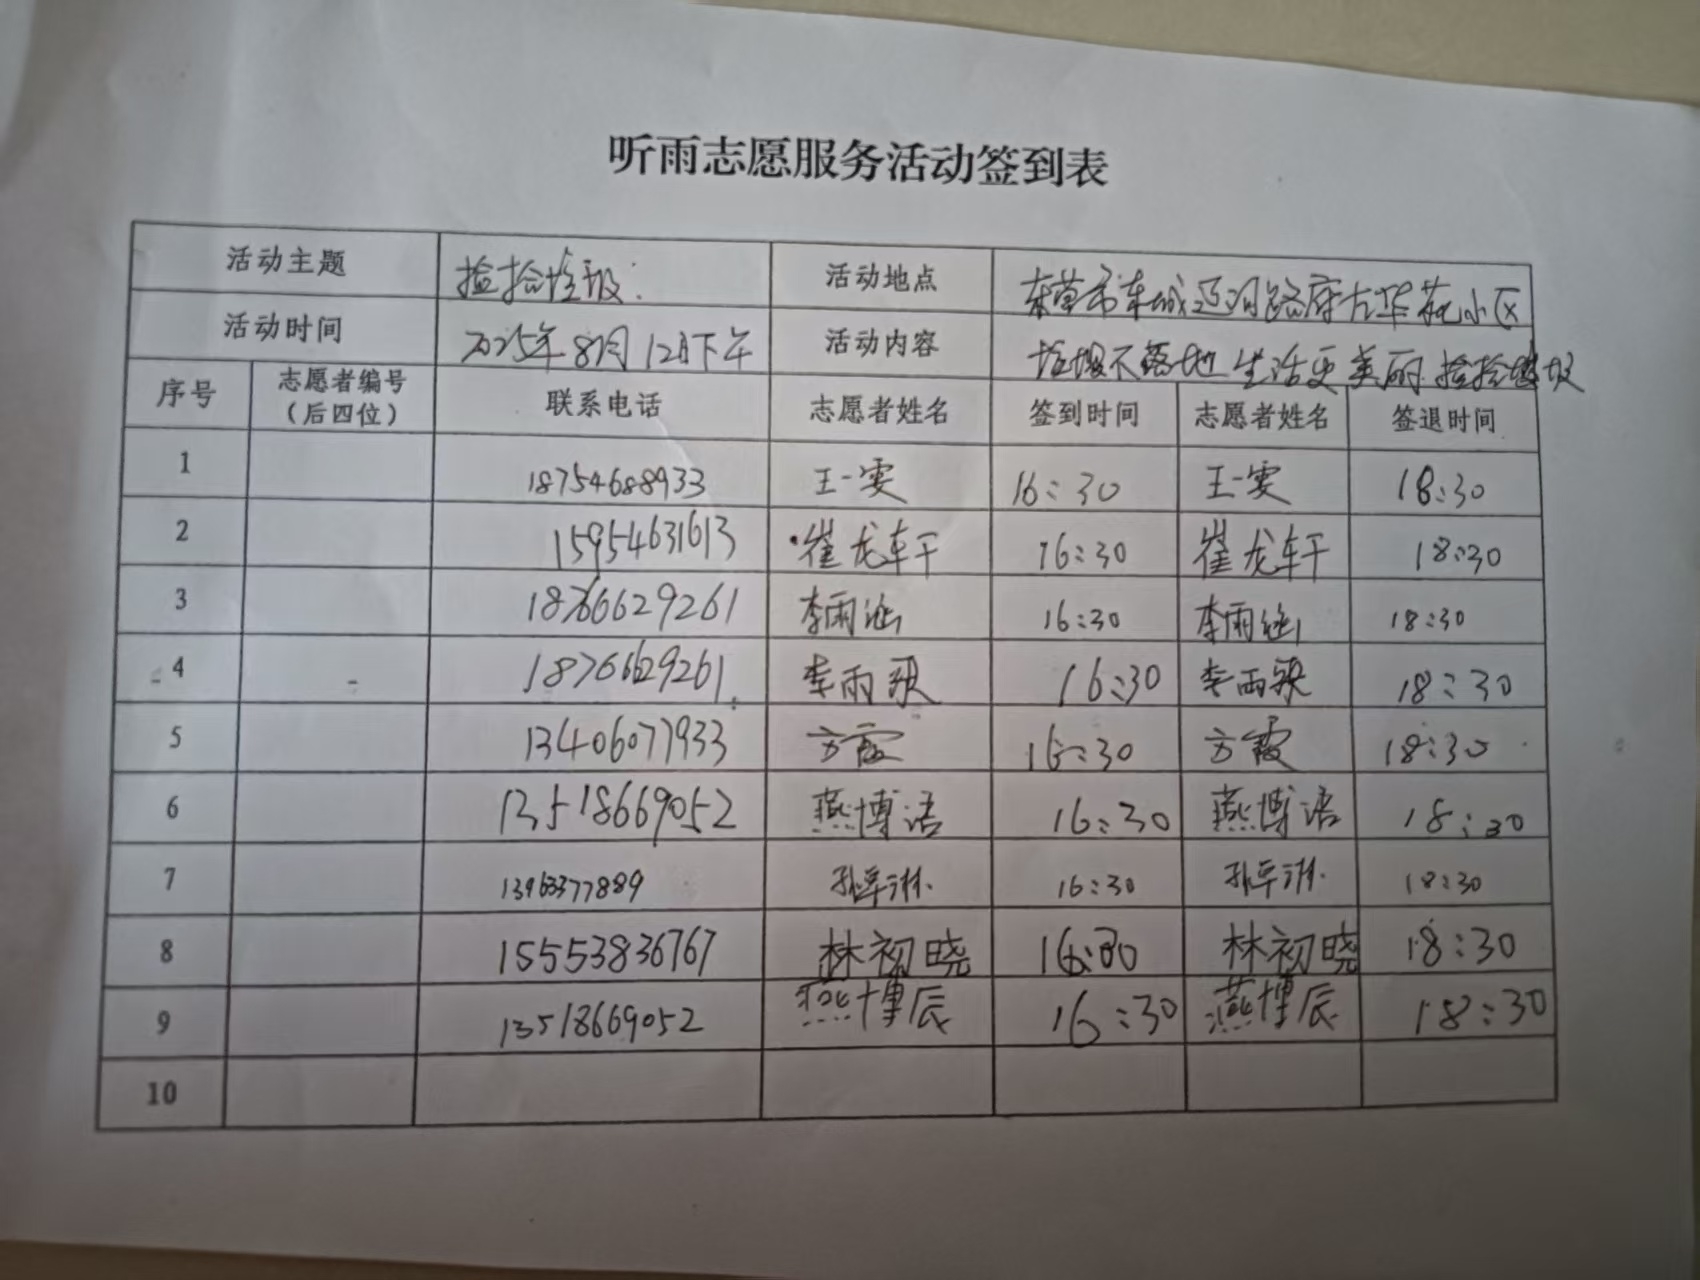 听雨志愿服务活动签到表
活动主题 捡拾垃圾 活动地点 东营市东城辽河路府左华苑小区
活动时间 2025年8月12日下午 活动内容 垃圾不落地 生活更美丽 捡拾垃圾
序号 志愿者编号（后四位） 联系电话 志愿者姓名 签到时间 志愿者姓名 签退时间
1 18754688933 王一雯 16:30 王一雯 18:30
2 15954631613 崔龙轩 16:30 崔龙轩 18:30
3 18766629261 李雨涵 16:30 李雨涵 18:30
4 18766629261 李雨 16:30 李雨 18:30
5 13406077933 方霞 16:30 方霞 18:30
6 13518669052 燕博语 16:30 燕博语 18:30
7 13963377889 16:30 18:30
8 15553836767 林初晓 16:30 林初晓 18:30
9 13518669052 燕博辰 16:30 燕博辰 18:30
10